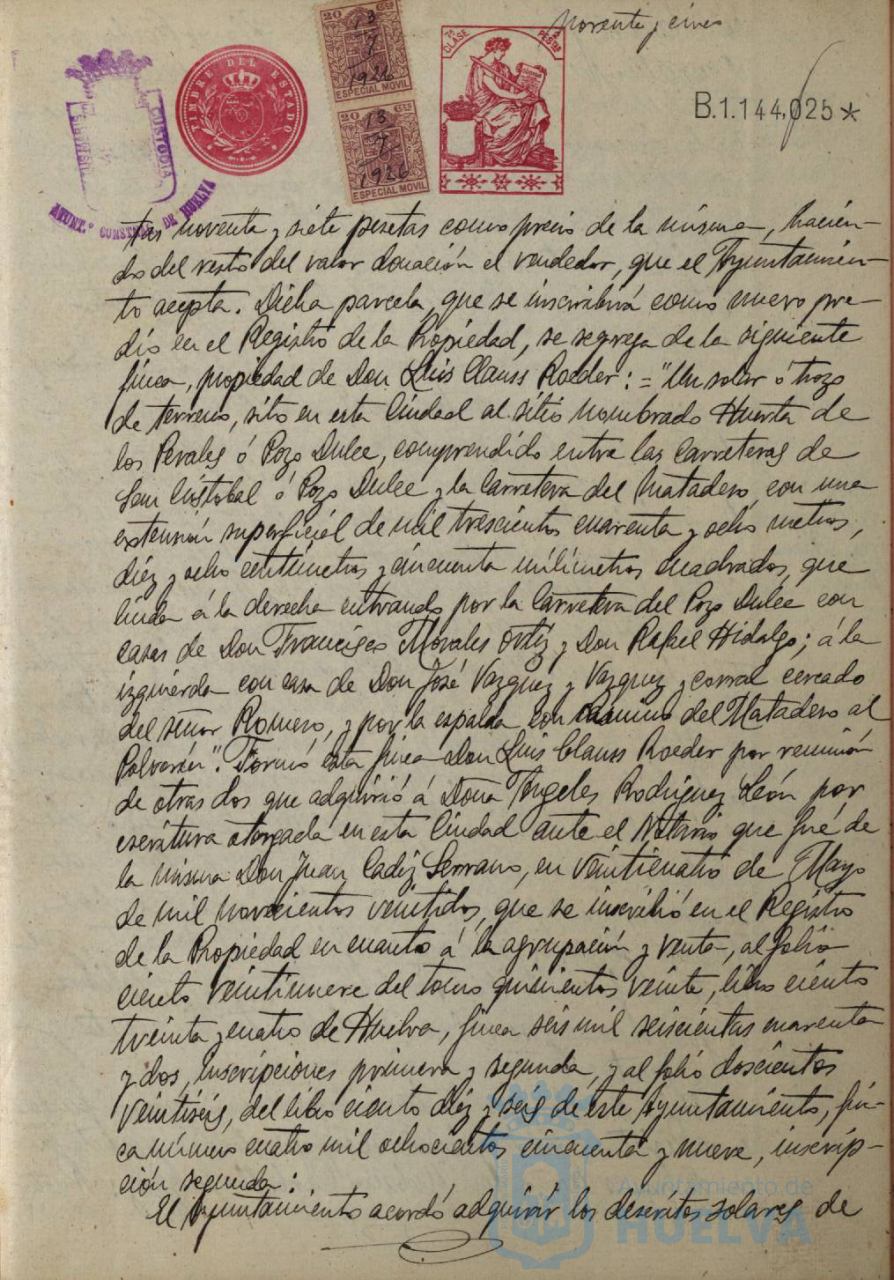 noventa y cinco
TIMBRE DEL ESTADO
20 Cts
13
7
1926
ESPECIAL MOVIL
20 Cts
13
7
1926
ESPECIAL MOVIL
CLASE
PESETAS
B.1.144,025*
CUSTODIA
AYUNT.º CONST. DE HUELVA
tres noventa y siete pesetas como precio de la misma, hacien-
do del resto del valor donación el vendedor, que el Ayuntamien-
to acepta. Dicha parcela, que se inscribirá como nuevo pre-
dio en el Registro de la Propiedad, se segrega de la siguiente
finca, propiedad de Don Luis Clauss Roeder: = "Un solar ó trozo
de terreno, sito en esta Ciudad al sitio nombrado Huerta de
los Perales ó Pozo Dulce, comprendido entre las Carreteras de
San Cristobal ó Pozo Dulce y la Carretera del Matadero, con una
extensión superficial de mil trescientos cuarenta y ocho metros,
diez y ocho centímetros y cincuenta milímetros cuadrados, que
linda á la derecha entrando por la Carretera del Pozo Dulce con
casas de Don Francisco Morales Ortíz y Don Rafael Hidalgo; á la
izquierda con casa de Don José Vazquez y Vazquez y corral cercado
del señor Romero, y por la espalda con Camino del Matadero al
Polvorín". Formó esta finca Don Luis Clauss Roeder por reunión
de otras dos que adquirió á Doña Angeles Rodriguez León por
escritura otorgada en esta Ciudad ante el Notario que fué de
la misma Don Juan Cadiz Serrano, en veinticuatro de Mayo
de mil novecientos veintidos, que se inscribió en el Registro
de la Propiedad en cuanto á la agrupación y venta, al folio
ciento veintinueve del tomo quinientos veinte, libro ciento
treinta y cuatro de Huelva, finca seis mil seiscientas cuarenta
y dos, inscripciones primera y segunda, y al folio doscientos
veintiseis, del libro ciento diez y seis de este Ayuntamiento, fin-
ca número cuatro mil ochocientos cincuenta y nueve, inscrip-
ción segunda:
El Ayuntamiento acordó adquirir los descritos solares de
Ayuntamiento de
HUELVA